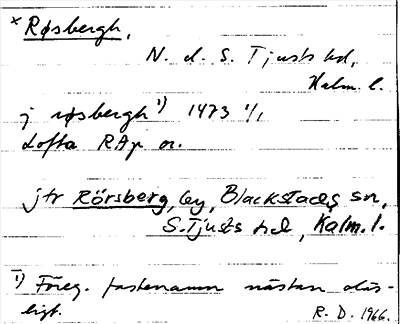 × Røsbergh,
N. d. S. Tjusts hd,
Kalm. l.
j røsbergh ¹) 1473 1/1
Lofta RAp or.
jtr Rörsberg, by, Blackstads sn,
S. Tjusts hd, Kalm. l.
¹) Föreg. fastenamn nästan oläs-
ligt. R. D. 1966.